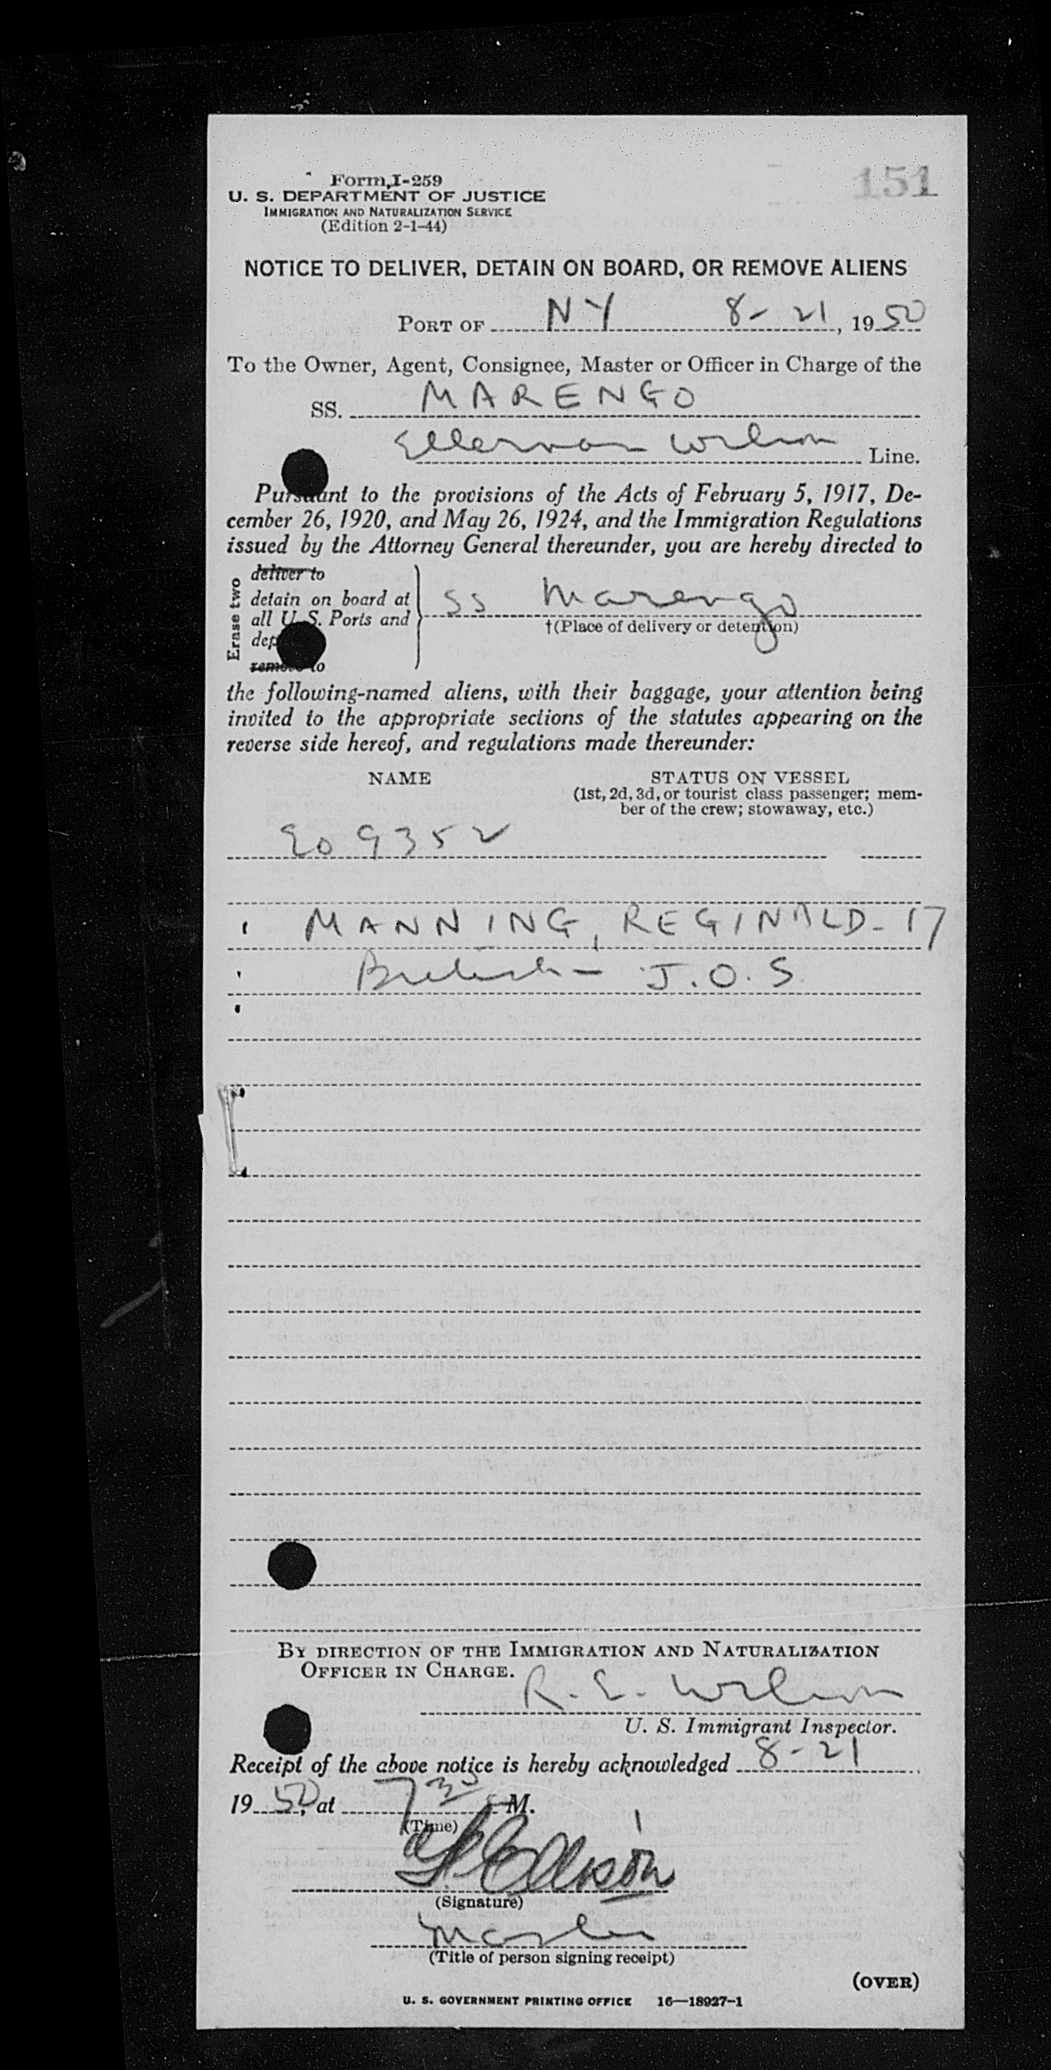 Form I-259
151
U. S. DEPARTMENT OF JUSTICE
IMMIGRATION AND NATURALIZATION SERVICE
(Edition 2-1-44)
NOTICE TO DELIVER, DETAIN ON BOARD, OR REMOVE ALIENS
PORT OF NY 8-21, 1950
To the Owner, Agent, Consignee, Master or Officer in Charge of the
SS. MARENGO
Ellerman Wilson Line.
Pursuant to the provisions of the Acts of February 5, 1917, De-
cember 26, 1920, and May 26, 1924, and the Immigration Regulations
issued by the Attorney General thereunder, you are hereby directed to
Erase two
deliver to
detain on board at
all U. S. Ports and
SS Marengo
†(Place of delivery or detention)
remove to
the following-named aliens, with their baggage, your attention being
invited to the appropriate sections of the statutes appearing on the
reverse side hereof, and regulations made thereunder:
NAME STATUS ON VESSEL
(1st, 2d, 3d, or tourist class passenger; mem-
ber of the crew; stowaway, etc.)
EO 9352
MANNING, REGINALD - 17
British - J.O.S.
BY DIRECTION OF THE IMMIGRATION AND NATURALIZATION
OFFICER IN CHARGE.
R. E. Wilson
U. S. Immigrant Inspector.
Receipt of the above notice is hereby acknowledged 8-21
1950, at 7 35 M.
(Time)
(Signature)
Master
(Title of person signing receipt)
(OVER)
U. S. GOVERNMENT PRINTING OFFICE 16—18927-1